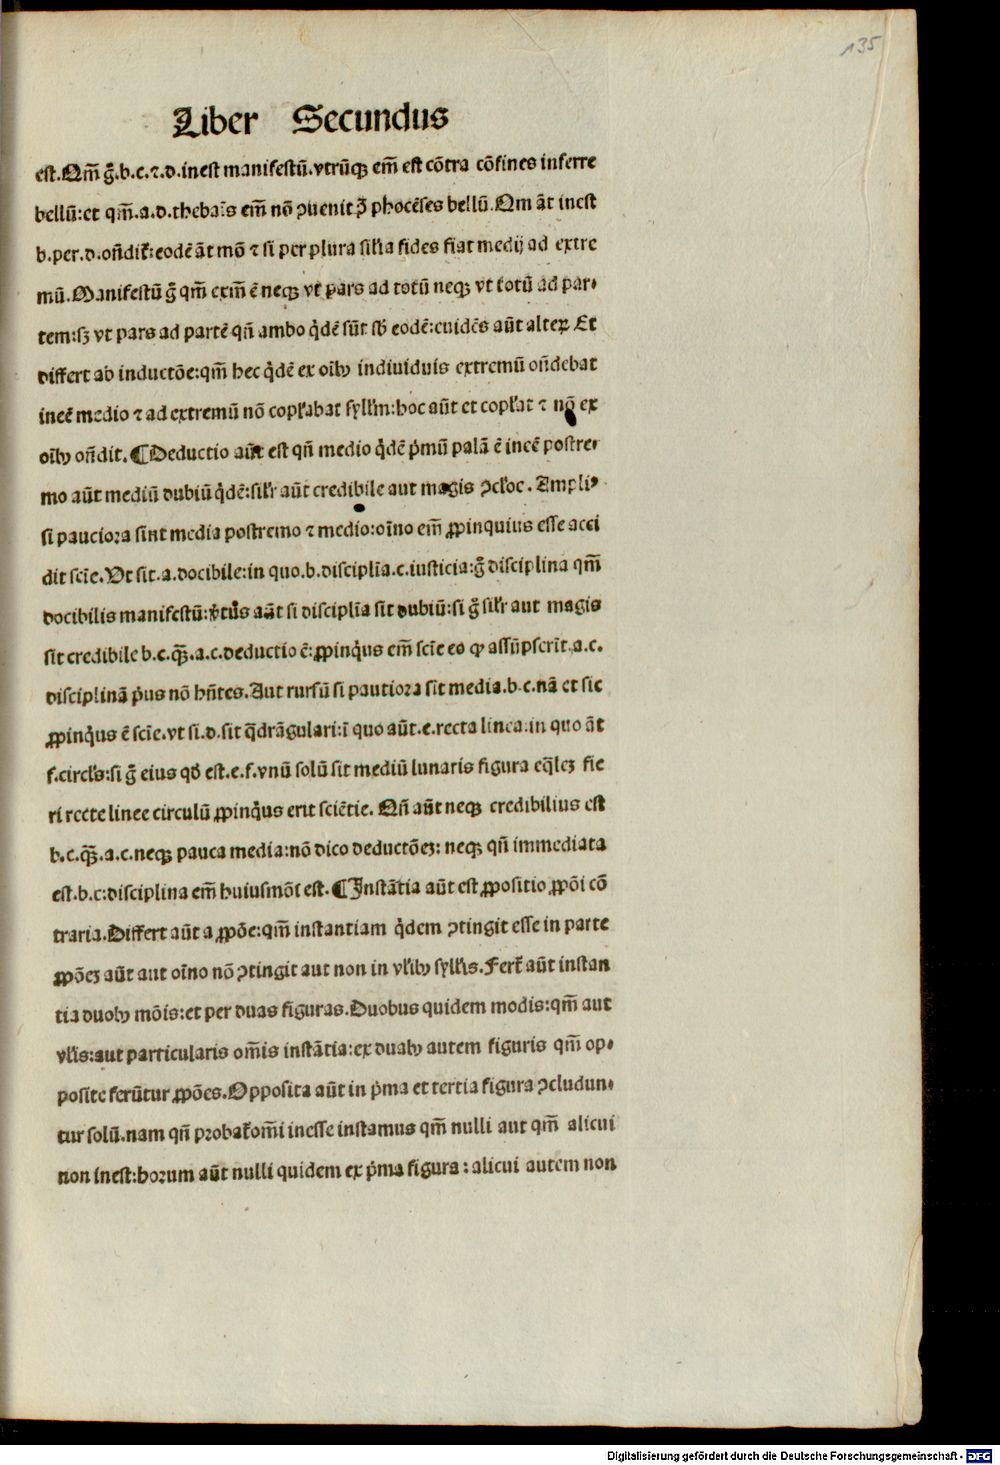 135
Liber Secundus
est. Qm̄ g̃.b.c.⁊.d.inest manifestū.vtrūqꝫ em̄ est cōtra cōfines inferre
bellū:et qm̄.a.d.thebaīs em̄ nō ꝓuenit ꝓ̄ phocēses bellū. Qm āt inest
b.per.d.on̄dit̃:eodē āt mō ⁊ si per plura sil'ia fides fiat medij ad extre
mū. Manifestū g̃ qm̄ exm̄ ē neqꝫ vt pars ad totū neqꝫ vt totū ad par-
tem:sꝫ vt pars ad partē qn̄ ambo q̇dē sūt sb̄ eodē:euidēs aūt alteꝝ. Et
differt ab inductōe:qm̄ hec q̇dē ex oīb⁹ indiuiduis extremū on̄debat
ineē medio ⁊ ad extremū nō copl'abat syll'm:hoc aūt et copl'at ⁊ nō ex
oīb⁹ on̄dit. ¶ Deductio aūt est qn̄ medio q̇dē p̄mū palā ē ineē postre-
mo aūt mediū dubiū q̇dē:sil'r aūt credibile aut magis ꝯcl'oe. Ampli⁹
si pauciora sint media postremo ⁊ medio:oīno em̄ ꝓpinquius esse acci
dit scīe. Vt sit.a.docibile:in quo.b.disciplīa.c.iusticia:g̃ disciplina qm̄
docibilis manifestū:v̓tus aūt si disciplīa sit dubiū:si g̃ sil'r aut magis
sit credibile b.c.qꝫ̄.a.c.deductio ē:ꝓpinq̇us em̄ scīe eo ꝙ assūpserīt.a.c.
disciplinā p̓us nō hn̄tes. Aut rursū si pautiora sit media.b.c.nā et sic
ꝓpinq̇us ē scīe.vt si.d.sit q̄drāgulari:ī quo aūt.e.recta linea.in quo āt
f.circl's:si g̃ eius qd̓ est.e.f.vnū solū sit mediū lunaris figura eq̄leꝫ fie
ri recte linee circulū ꝓpinq̇us erit sciētie. Qn̄ aūt neqꝫ credibilius est
b.c.qꝫ̄.a.c.neqꝫ pauca media:nō dico deductōeꝫ: neqꝫ qn̄ immediata
est.b.c:disciplina em̄ huiusmōi est. ¶ Instātia aūt est ꝓpositio ꝓpōi cō
traria. Differt aūt a ꝓpōe:qm̄ instantiam q̇dem ꝯtingit esse in parte
ꝓpōeꝫ aūt aut oīno nō ꝯtingit aut non in vl'ib⁹ syll'is. Fert̃ aūt instan
tia duob⁹ mōis:et per duas figuras. Duobus quidem modis:qm̄ aut
vl'is:aut particularis om̄is instātia:ex duab⁹ autem figuris qm̄ op-
posite ferūtur ꝓpōes. Opposita aūt in p̓ma et tertia figura ꝯcludun-
tur solū.nam qn̄ probat̃ om̄i inesse instamus qm̄ nulli aut qm̄ alicui
non inest:horum aūt nulli quidem ex p̓ma figura: alicui autem non
Digitalisierung gefördert durch die Deutsche Forschungsgemeinschaft - DFG